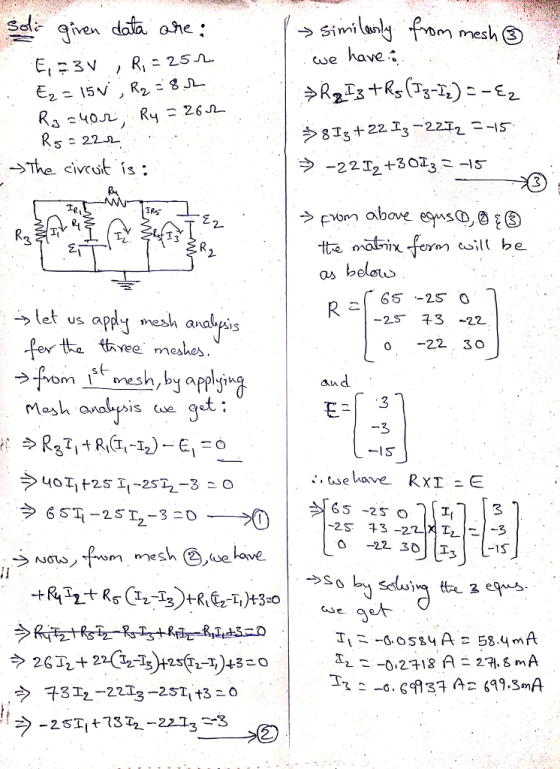 Sol:- given data are :
E₁ = 3V , R₁ = 25Ω
E₂ = 15V , R₂ = 8Ω
R₃ = 40Ω, R₄ = 26Ω
R₅ = 22Ω
→ The circuit is :
R₄
IR₁ IR₅
R₃ I₁ R₁ I₂ R₅ I₃ E₂
E₁ R₂
→ let us apply mesh analysis
for the three meshes.
→ from 1st mesh, by applying
Mesh analysis we get :
⇒ R₃I₁ + R₁(I₁-I₂) - E₁ = 0
⇒ 40I₁ + 25I₁ - 25I₂ - 3 = 0
⇒ 65I₁ - 25I₂ - 3 = 0 → ①
→ Now, from mesh ②, we have
+R₄I₂ + R₅(I₂-I₃) + R₁(I₂-I₁) + 3 = 0
⇒ R₄I₂ + R₅I₂ - R₅I₃ + R₁I₂ - R₁I₁ + 3 = 0
⇒ 26I₂ + 22(I₂-I₃) + 25(I₂-I₁) + 3 = 0
⇒ 73I₂ - 22I₃ - 25I₁ + 3 = 0
⇒ -25I₁ + 73I₂ - 22I₃ = -3 → ②
→ Similarly from mesh ③
we have :
⇒ R₂I₃ + R₅(I₃-I₂) = -E₂
⇒ 8I₃ + 22I₃ - 22I₂ = -15
⇒ -22I₂ + 30I₃ = -15 → ③
→ from above equns ①, ② & ③
the matrix form will be
as below.
R = [ 65 -25 0
-25 73 -22
0 -22 30 ]
and
E = [ 3
-3
-15 ]
∴ we have R×I = E
⇒ [ 65 -25 0 ] [ I₁ ] [ 3 ]
[ -25 73 -22 ] × [ I₂ ] = [ -3 ]
[ 0 -22 30 ] [ I₃ ] [ -15 ]
→ So by solving the 3 equns.
we get
I₁ = -0.0584 A = 58.4mA
I₂ = -0.2718 A = 271.8mA
I₃ = -0.69937 A = 699.3mA